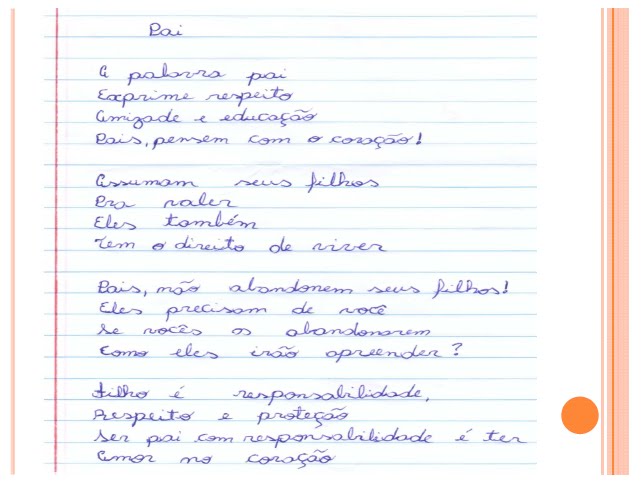 Pai
A palavra pai
Exprime respeito
Amizade e educação
Pais, pensem com o coração!
Assumam seus filhos
Pra valer
Eles também
Tem o direito de viver
Pais, não abandonem seus filhos!
Eles precisam de você
Se vocês os abandonarem
Como eles irão apreender?
Filho é responsabilidade,
Respeito e proteção
Ser pai com responsabilidade é ter
Amor no coração